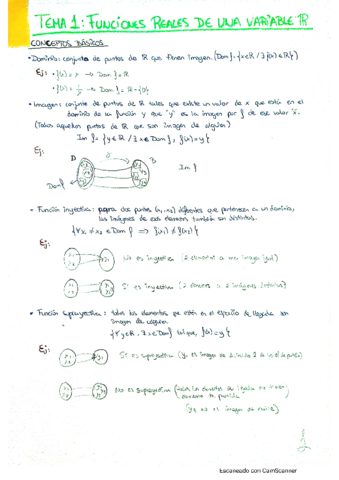 TEMA 1: FUNCIONES REALES DE UNA VARIABLE ℝ
CONCEPTOS BÁSICOS
• Dominio: conjunto de puntos de ℝ que tienen imagen. (Dom f: {x∈ℝ / ∃ f(x)∈ℝ})
Ej: • f(x) = x → Dom f = ℝ
• Imagen: conjunto de puntos de ℝ tales que existe un valor de x que está en el
dominio de la función y que "y" es la imagen por f de ese valor
(Todos aquellos puntos de ℝ que son imagen de alguien)
Im f = {y∈ℝ / ∃x∈Dom f, f(x)=y}
Ej:
D
Dom f
Im f
• Función inyectiva: para dos puntos (x₁, x₂) diferentes que pertenecen a un dominio,
las imágenes de esos elementos también son distintas.
{∀x₁ ≠ x₂ ∈ Dom f ⇒ f(x₁) ≠ f(x₂)}
Ej:
No es inyectiva (2 elementos a una imagen igual)
Sí es inyectiva (2 elementos a 2 imágenes distintas)
• Función suprayectiva: todos los elementos que están en el espacio de llegada son
imagen de alguien
{∀y∈ℝ, ∃x∈Dom f tal que, f(x)=y}
Ej:
Sí es suprayectiva
No es suprayectiva
elemento de partida
Escaneado con CamScanner